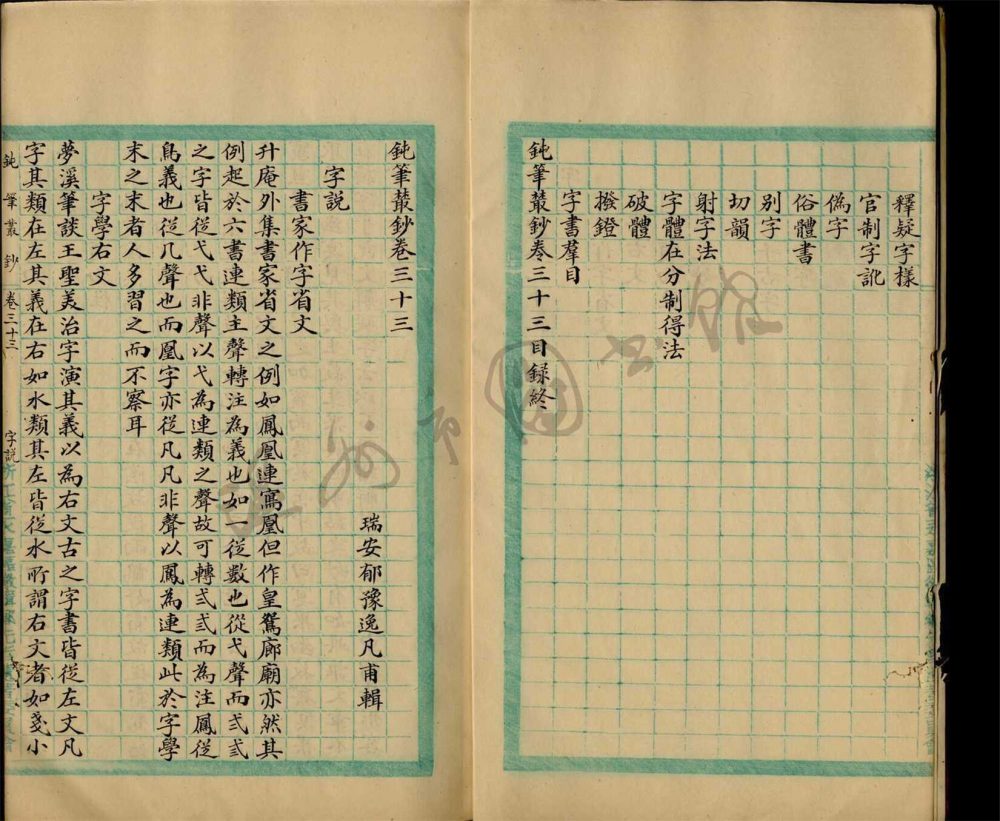 釋疑字樣
官制字訛
偽字
俗體書
別字
切韻
射字法
字體在分制得法
破體
撥鐙
字書羣目
鈍筆叢鈔卷三十三目録終
鈍筆叢鈔卷三十三
瑞安郁豫逸凡甫輯
字説
書家作字省文
升庵外集書家省文之例如鳳凰連寫凰但作皇鴛廊廟亦然其
例起於六書連類主聲轉注為義也如一從數也從弋聲而弍弎
之字皆從弋弋非聲以弋為連類之聲故可轉弍弎而為注鳳從
鳥義也從几聲也而凰字亦從凡凡非聲以鳳為連類此於字學
末之末者人多習之而不察耳
字學右文
夢溪筆談王聖美治字演其義以為右文古之字書皆從左文凡
字其類在左其義在右如水類其左皆從水所謂右文者如戔小
鈍筆叢鈔 卷三十三 字説